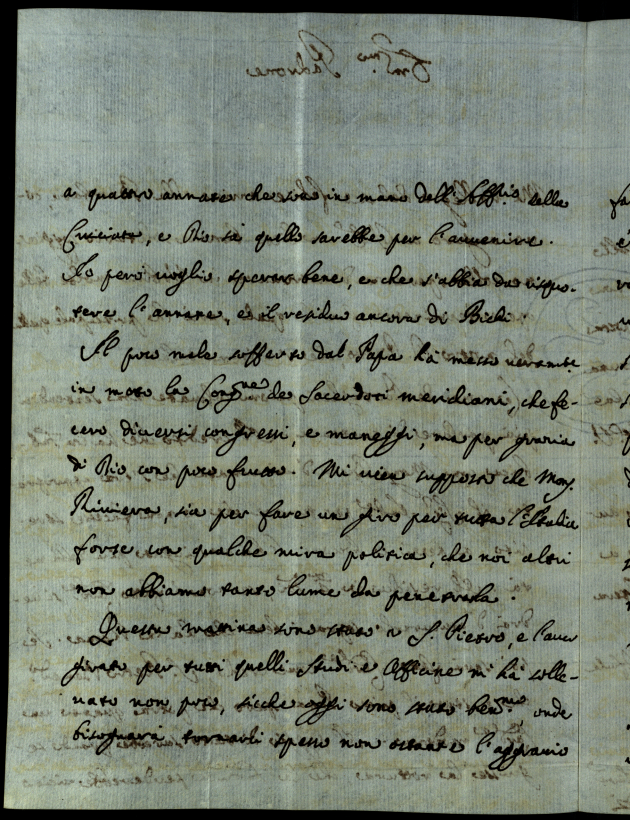 a quattro annate che son in mano dell' Offi.o delle
Crociate, e Dio sa quello sarebbe per l'auuenire.
Io però uoglio sperar bene, e che s'abbia da risquo-
tere l'annate, e il residuo ancora di Bichi.
Il poco male sofferto dal Papa hà messo ueramte
in moto la Congne de Sacerdoti meridiani, che fe-
cero diuersi congressi, e maneggi, ma per grazia
di Dio con poco frutto. Mi uien supposto che Mons.
Riuiera, sia per fare un giro per tutta l'Italia
forse con qualche mira politica, che noi altri
non abbiamo tanto lume da penetrarla.
Questa mattina sono stato a S. Pietro, e l'auer
girato per tutti quelli Studi e Officine mi hà solle-
uato non poco, sicche oggi sono stato ben.mo, onde
bisognarà tornarli spesso non ostante l'aggrauio